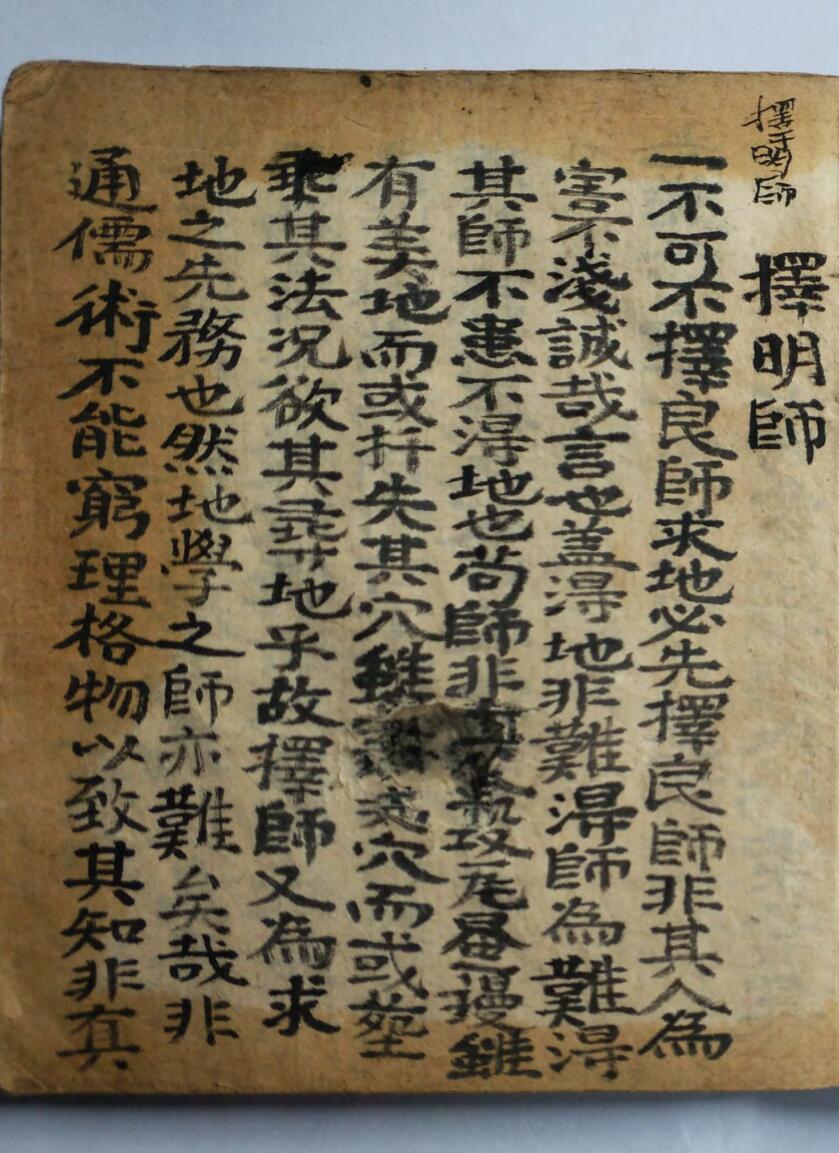 擇明師
擇明師
一不可不擇良師求地必先擇良師非其人為
害不淺誠哉言也盖淂地非難淂師為難淂
其師不患不淂地也苟師非真
有美地而或扦失其穴雖 穴而或塟
乘其法况欲其尋地乎故擇師又為求
地之先務也然地學之師亦難矣哉非
通儒術不能窮理格物以致其知非有真